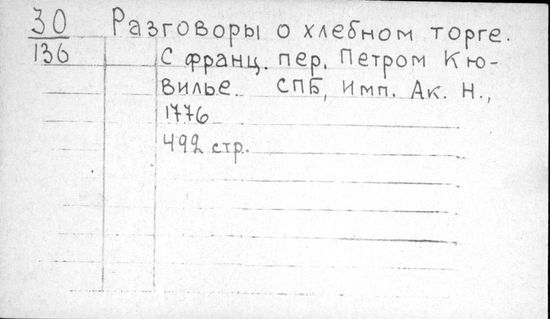 30 Разговоры о хлебном торге.
136 С франц. пер. Петром Кю-
вилье СПБ, Имп. Ак. Н.,
1776
492 стр.